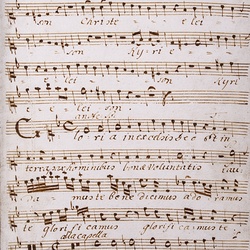 son Christe elei
son Kyrie
elei son Kyri
e elei son.
loria in excelsis Deo et in
terra pax hominibus bonæ voluntatis lau
da muste bene dicimus ado ramus
te glorifi camus glorifi camuste
alla capella